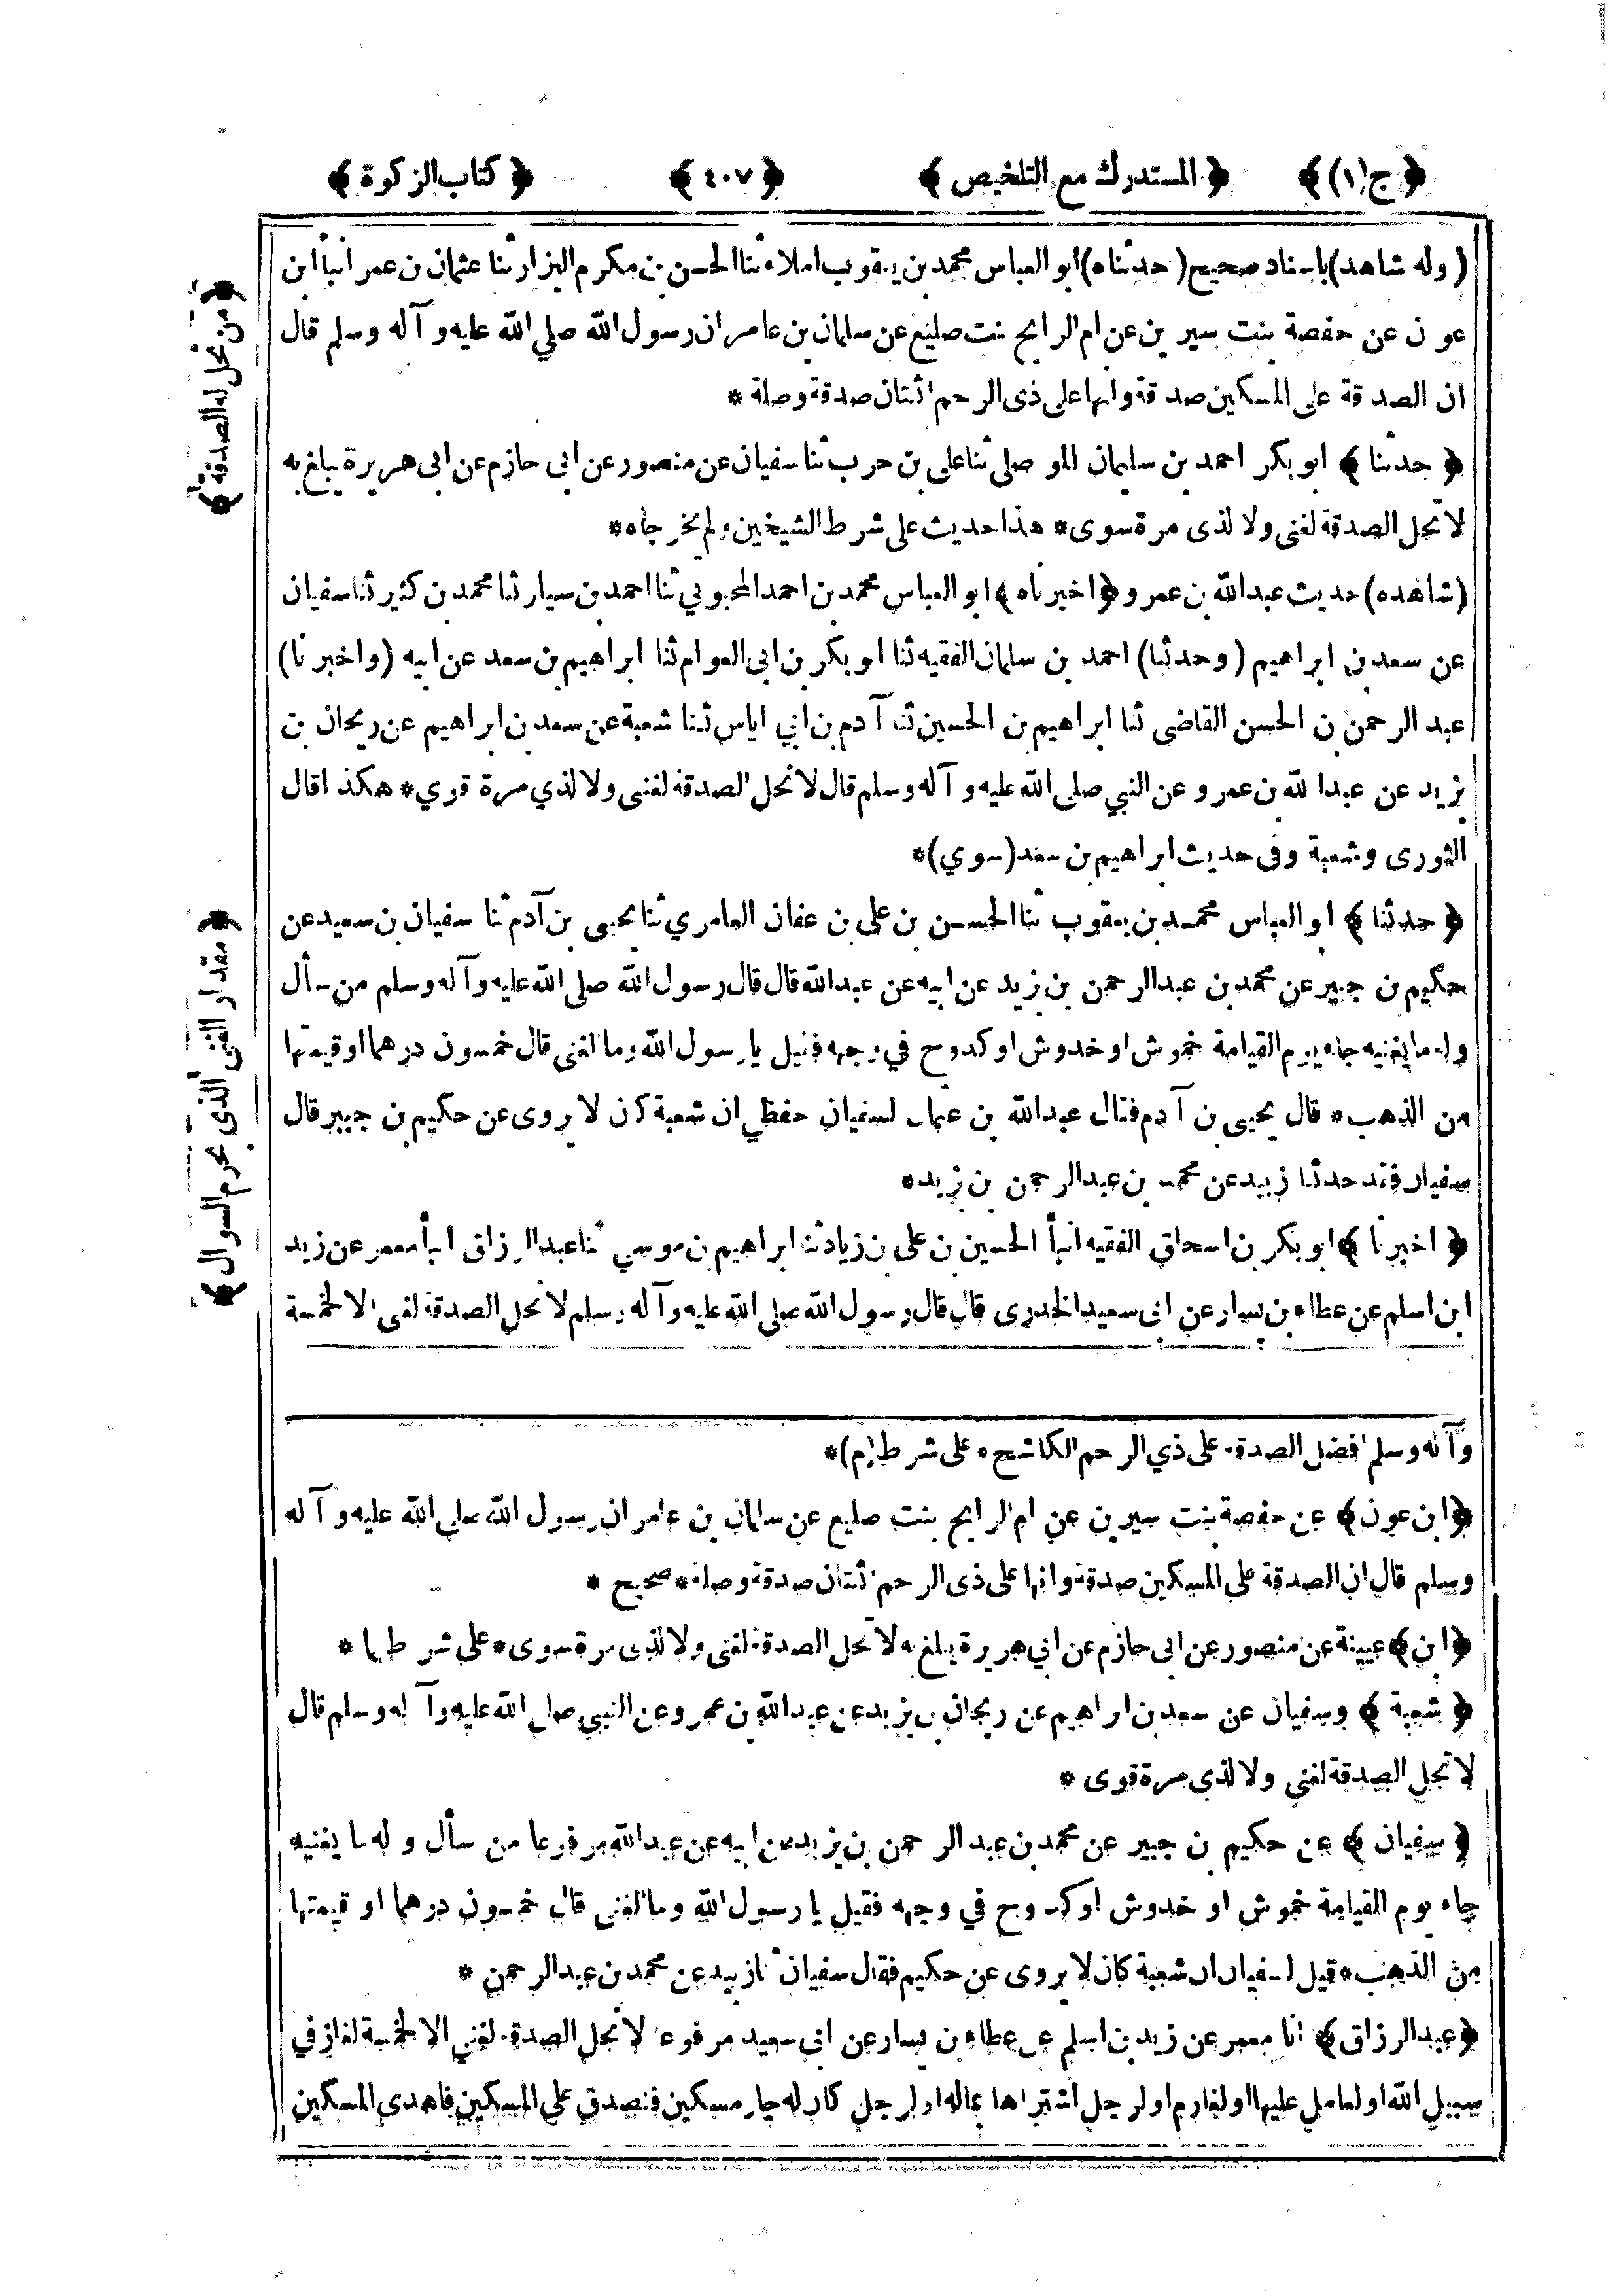 ﴿ ج(١) ﴾ ﴿ المستدرك مع التلخيص ﴾ ﴿ ٤٠٧ ﴾ ﴿ كتاب الزكوة ﴾
(وله شاهد) باسناد صحيح (حدثناه) ابو العباس محمد بن يعقوب املاء ثنا الحسن بن مكرم البزار ثنا عثمان بن عمر انبأ ابن
عون عن حفصة بنت سيرين عن ام الرايح بنت صليع عن سلمان بن عامر ان رسول الله صلى الله عليه وآله وسلم قال
ان الصدقة على المسكين صدقة وانها على ذى الرحم اثنتان صدقة وصلة *
﴿ حدثنا ﴾ ابو بكر احمد بن سليمان الموصلى ثنا على بن حرب ثنا سفيان عن منصور عن ابى حازم عن ابى هريرة يبلغ به
لا تحل الصدقة لغنى ولا لذى مرة سوى * هذا حديث على شرط الشيخين ولم يخرجاه *
(شاهده) حديث عبد الله بن عمرو ﴿ اخبرناه ﴾ ابو العباس محمد بن احمد المحبوبي ثنا احمد بن سيار ثنا محمد بن كثير ثنا سفيان
عن سعد بن ابراهيم (وحدثنا) احمد بن سلمان الفقيه ثنا ابو بكر بن ابى العوام ثنا ابراهيم بن سعد عن ابيه (واخبرنا)
عبد الرحمن بن الحسن القاضى ثنا ابراهيم بن الحسين ثنا آدم بن ابي اياس ثنا شعبة عن سعد بن ابراهيم عن ريحان بن
يزيد عن عبد الله بن عمرو عن النبي صلى الله عليه وآله وسلم قال لا تحل الصدقة لغنى ولا لذي مرة قوي * هكذا قال
الثورى وشعبة وفى حديث ابراهيم بن سعد (سوي) *
﴿ حدثنا ﴾ ابو العباس محمد بن يعقوب ثنا الحسن بن على بن عفان العامري ثنا يحيى بن آدم ثنا سفيان بن سعيد عن
حكيم بن جبير عن محمد بن عبد الرحمن بن يزيد عن ابيه عن عبد الله قال قال رسول الله صلى الله عليه وآله وسلم من سأل
وله ما يغنيه جاء يوم القيامة خموش او خدوش او كدوح في وجهه فقيل يا رسول الله وما الغنى قال خمسون درهما او قيمتها
من الذهب * قال يحيى بن آدم فقال عبد الله بن عثمان لسفيان حفظي ان شعبة كان لا يروى عن حكيم بن جبير قال
سفيان فقد حدثنا زبيد عن محمد بن عبد الرحمن بن يزيد *
﴿ اخبرنا ﴾ ابو بكر بن اسحاق الفقيه انبأ الحسين بن على بن زياد ثنا ابراهيم بن موسي ثنا عبد الرزاق انبأ معمر عن زيد
ابن اسلم عن عطاء بن يسار عن ابى سعيد الخدرى قال قال رسول الله صلى الله عليه وآله وسلم لا تحل الصدقة لغنى الا لخمسة
﴿ من تحل له الصدقة ﴾
﴿ مقدار الغنى الذى يحرم السوال ﴾
وآله وسلم افضل الصدقة على ذي الرحم الكاشح * على شرط (م) *
﴿ ابن عون ﴾ عن حفصة بنت سيرين عن ام الرايح بنت صليع عن سلمان بن عامر ان رسول الله صلى الله عليه وآله
وسلم قال ان الصدقة على المسكين صدقة وانها على ذى الرحم اثنتان صدقة وصلة * صحيح *
﴿ ابن ﴾ عيينة عن منصور عن ابى حازم عن ابي هريرة يبلغ به لا تحل الصدقة لغنى ولا لذى مرة سوى * على شرطهما *
﴿ شعبة ﴾ وسفيان عن سعد بن ابراهيم عن ريحان بن يزيد عن عبد الله بن عمرو عن النبي صلى الله عليه وآله وسلم قال
لا تحل الصدقة لغني ولا لذى مرة قوى *
﴿ سفيان ﴾ عن حكيم بن جبير عن محمد بن عبد الرحمن بن يزيد عن ابيه عن عبد الله مرفوعا من سأل وله ما يغنيه
جاء يوم القيامة خموش او خدوش او كدوح في وجهه فقيل يا رسول الله وما الغنى قال خمسون درهما او قيمتها
من الذهب * قيل لسفيان ان شعبة كان لا يروى عن حكيم فقال سفيان ثنا زبيد عن محمد بن عبد الرحمن *
﴿ عبد الرزاق ﴾ انا معمر عن زيد بن اسلم عن عطاء بن يسار عن ابي سعيد مرفوعا لا تحل الصدقة لغني الا لخمسة لغاز في
سبيل الله او لعامل عليها او لغارم او لرجل اشتراها بماله او لرجل كان له جار مسكين فتصدق على المسكين فاهدى المسكين